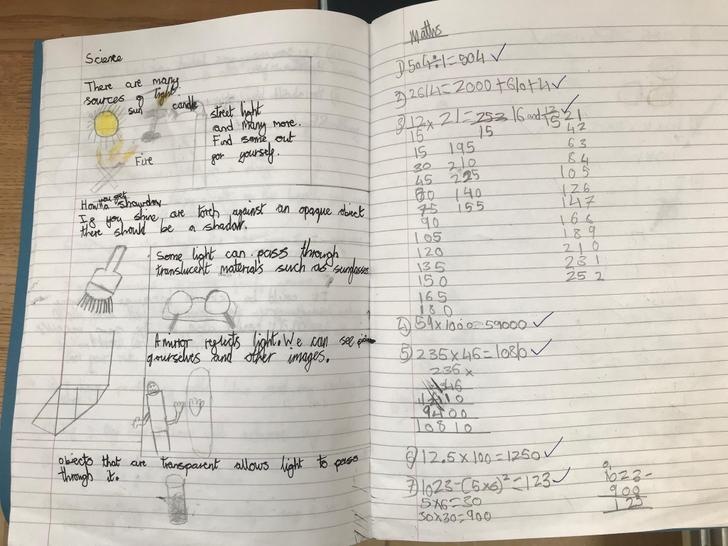 Science
There are many
sources of light
sun
candle
street light
and many more.
Find some out
for yourself.
Fire
How you get a
If you shine are torch against an opaque object
there should be a shadow.
Some light can pass through
translucent materials such as sunglasses
A mirror reflects light. We can see
ourselves and other images.
objects that are transparent allows light to pass
through it.
Maths
1) 504÷1=504 ✓
2) 2614=2000+610+4 ✓
3) 12/15 × 21 = 252/15 16 and 12/15 ✓
15 195
30 210
45 225
60 140
75 155
90
105
120
135
150
165
180
21
42
63
84
105
126
147
168
189
210
231
252
4) 59×1000=59000 ✓
5) 235×46=10810 ✓
235 ×
46
1410
9400
10810
6) 12.5×100=1250 ✓
7) 1023-(5×6)²=123 ✓
5×6=30
30×30=900
1023-
900
123